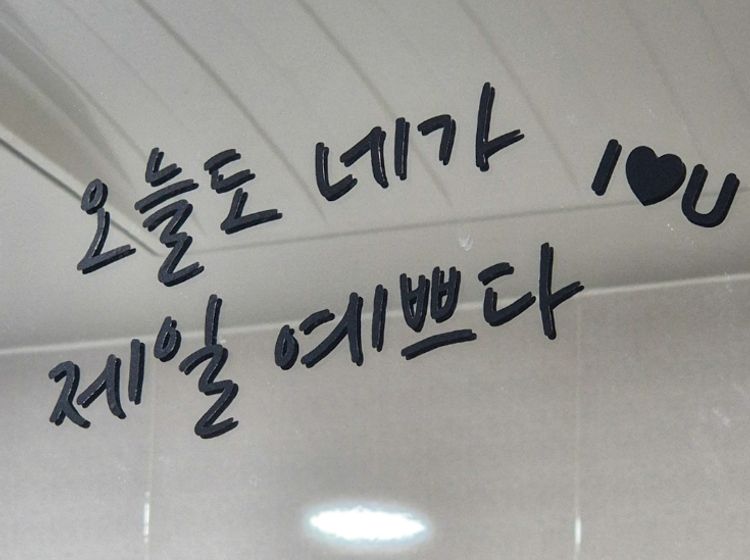 오늘도 네가
I♥U
제일 예쁘다